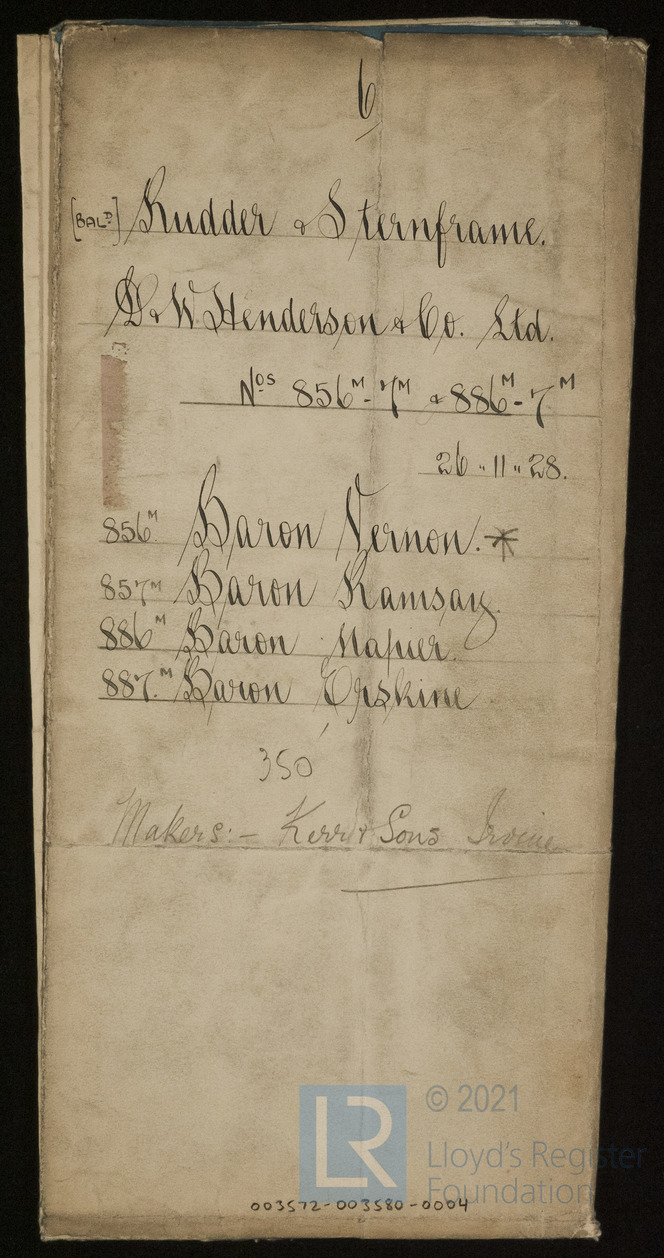 6
[BALD] Rudder & Sternframe.
D. & W. Henderson & Co. Ltd.
Nos 856M-7M & 886M-7M
26 " 11 " 28.
856M Baron Vernon. *
857M Baron Ramsay.
886M Baron Napier.
887M Baron Erskine
350
Makers:- Kerr & Sons Irvine
LR
© 2021
Lloyd's Register
Foundation
003572-003580-0004